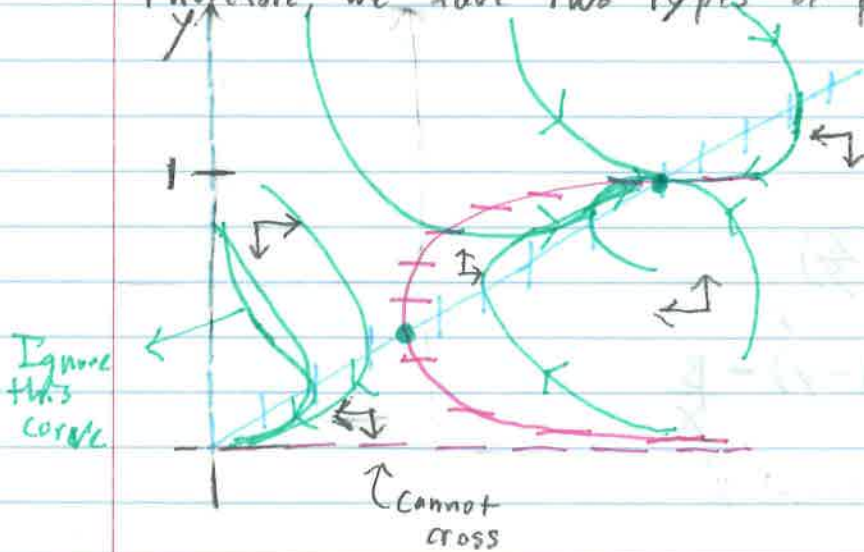 we have two types of
y
1
Ignore
this
curve
Cannot
cross